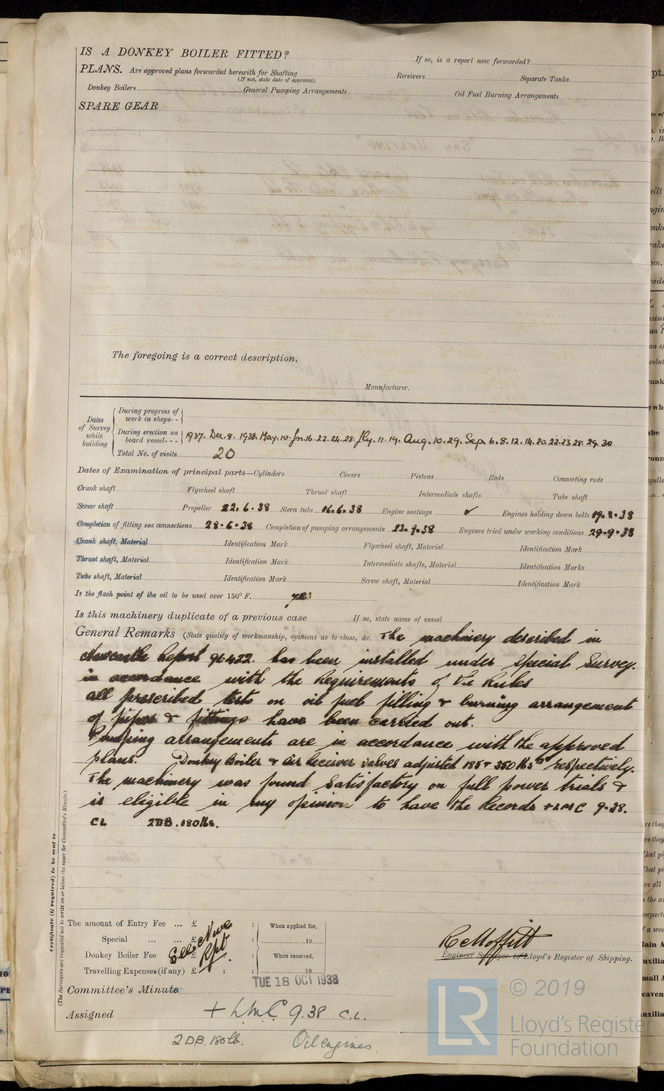 IS A DONKEY BOILER FITTED? If so, is a report now forwarded?
PLANS. Are approved plans forwarded herewith for Shafting Receivers Separate Tanks
(If not, state date of approval)
Donkey Boilers General Pumping Arrangements Oil Fuel Burning Arrangements
SPARE GEAR
The foregoing is a correct description,
Manufacturer.
Dates of Survey while building
During progress of work in shops--
During erection on board vessel--- 1937. Dec. 8. 1938. May. 10. Jn. 16. 22. 24. 28. Jly. 11. 19. Aug. 10. 29. Sep. 6. 8. 12. 14. 20. 22. 23. 28. 29. 30
Total No. of visits 20
Dates of Examination of principal parts—Cylinders Covers Pistons Rods Connecting rods
Crank shaft Flywheel shaft Thrust shaft Intermediate shafts Tube shaft
Screw shaft Propeller 22.6.38 Stern tube 16.6.38 Engine seatings ✓ Engines holding down bolts 19.8.38
Completion of fitting sea connections 28.6.38 Completion of pumping arrangements 23.9.38 Engines tried under working conditions 29.9.38
Crank shaft, Material Identification Mark Flywheel shaft, Material Identification Mark
Thrust shaft, Material Identification Mark Intermediate shafts, Material Identification Marks
Tube shaft, Material Identification Mark Screw shaft, Material Identification Mark
Is the flash point of the oil to be used over 150° F. yes
Is this machinery duplicate of a previous case If so, state name of vessel
General Remarks (State quality of workmanship, opinions as to class, &c. The machinery described in
Newcastle Report 96422. has been installed under Special Survey.
in accordance with the Requirements of the Rules
all prescribed tests on oil fuel filling & burning arrangement
of pipes & fittings have been carried out.
Pumping arrangements are in accordance with the approved
plans. Donkey Boiler & Air Receiver valves adjusted 185 & 350 lbs respectively.
The machinery was found satisfactory on full power trials &
is eligible in my opinion to have the Records +LMC 9.38.
CL 2DB. 180 lbs.
Certificate (if required) to be sent to
(The Surveyors are requested not to write on or below the space for Committee's Minute.)
The amount of Entry Fee ... £ : When applied for,
Special ... ... £ : 19
Donkey Boiler Fee £ : When received,
Travelling Expenses (if any) £ : 19
See Nwc Rpt.
R C Moffitt
Engineer Surveyor to Lloyd's Register of Shipping.
Committee's Minute TUE 18 OCT 1938
Assigned + LMC 9.38 C.L.
2 DB. 180 lb. Oil engines.
LR
© 2019
Lloyd's Register
Foundation